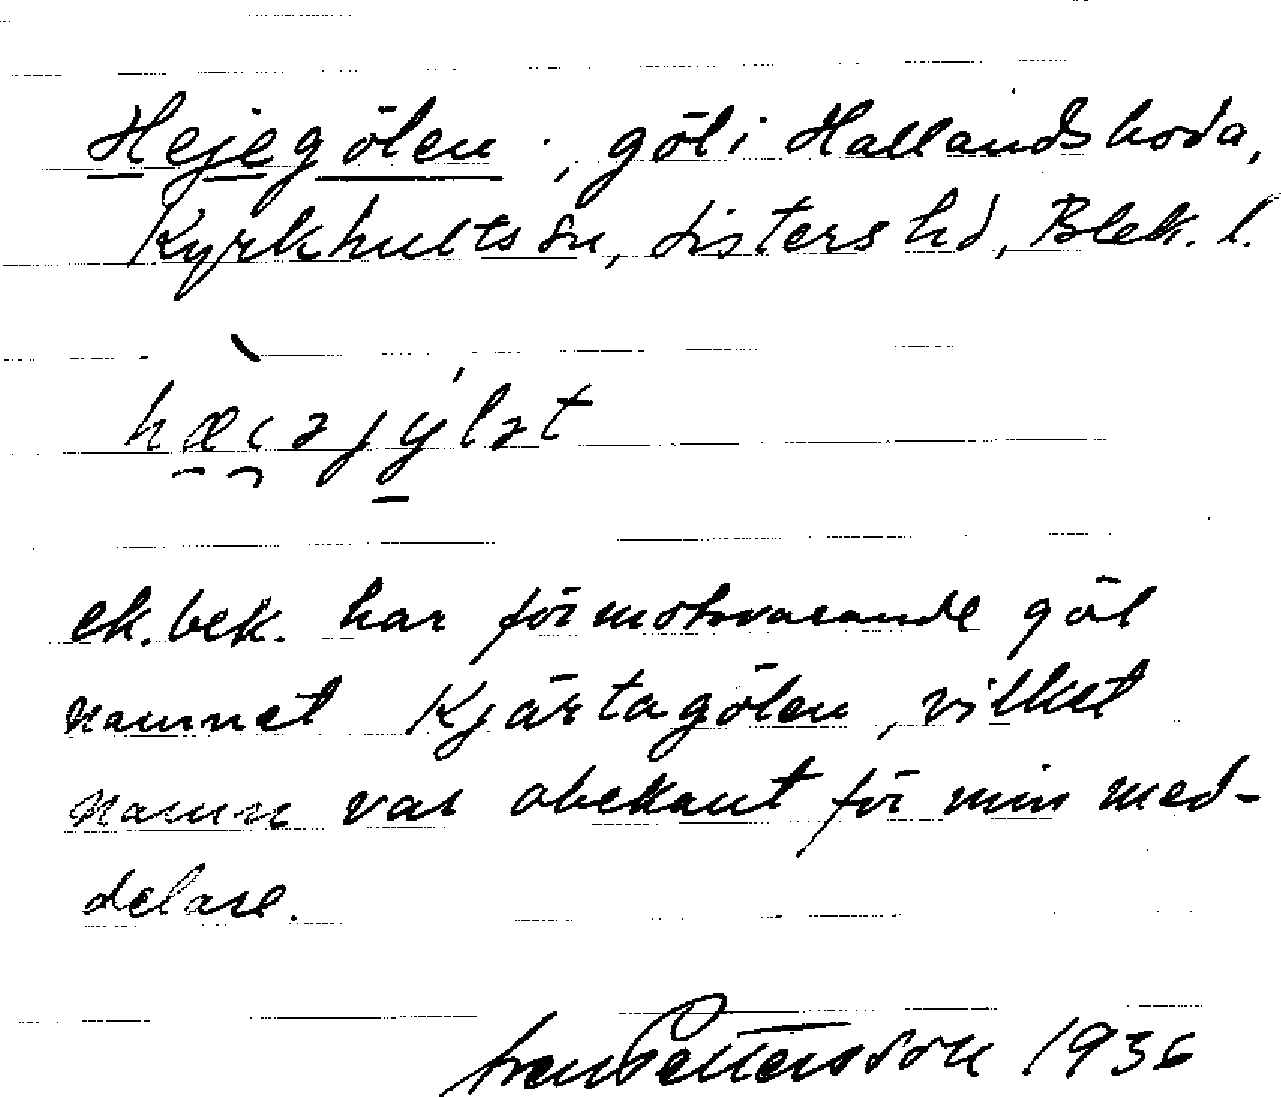 Hejegölen, göl i Hallandsboda,
Kyrkhults sn, Listers hd, Blek. l.
hæɩəɟýlət
ek. bek. har för motsvarande göl
namnet Kjärtagölen, vilket
namn var obekant för min med-
delare.
Sven Pettersson 1936